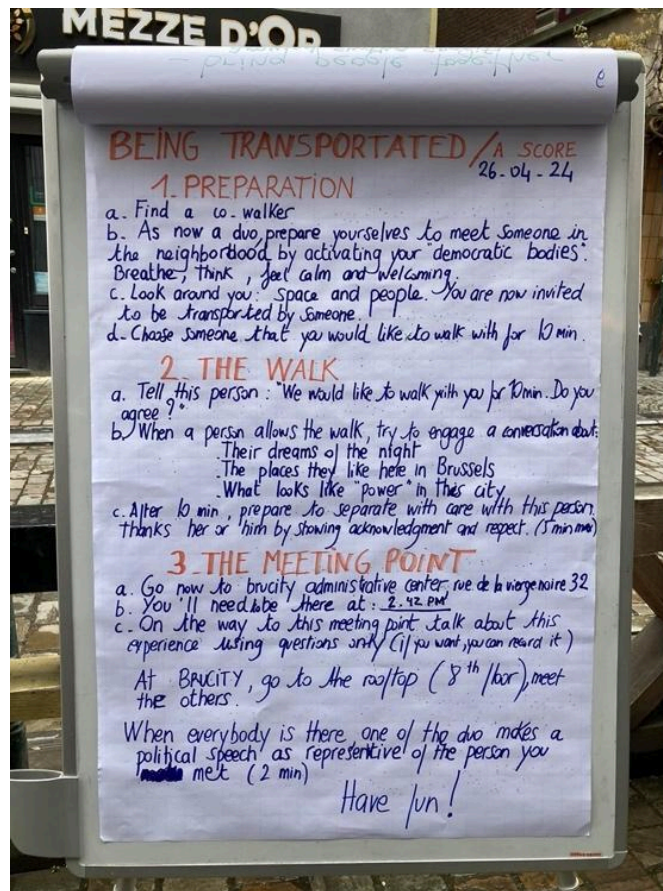 MEZZE D'OR
BEING TRANSPORTATED / A SCORE
26-04-24
1. PREPARATION
a. Find a co-walker
b. As now a duo, prepare yourselves to meet someone in
the neighborhood by activating your "democratic bodies".
Breathe, think, feel calm and welcoming.
c. Look around you: space and people. You are now invited
to be transported by someone.
d. Choose someone that you would like to walk with for 10 min.
2. THE WALK
a. Tell this person: "We would like to walk with you for 10 min. Do you
agree?"
b. When a person allows the walk, try to engage a conversation about:
. Their dreams of the night
. The places they like here in Brussels
. What looks like "power" in this city
c. After 10 min, prepare to separate with care with this person,
thanks her or him by showing acknowledgment and respect. (5 min max)
3. THE MEETING POINT
a. Go now to brucity administrative center, rue de la vierge noire 32
b. You'll need to be there at: 2.42 PM
c. On the way to this meeting point, talk about this
experience using questions only (if you want, you can record it)
At BRUCITY, go to the rooftop (8th floor), meet
the others.
When everybody is there, one of the duo makes a
political speech as representive of the person you
met (2 min)
Have fun!